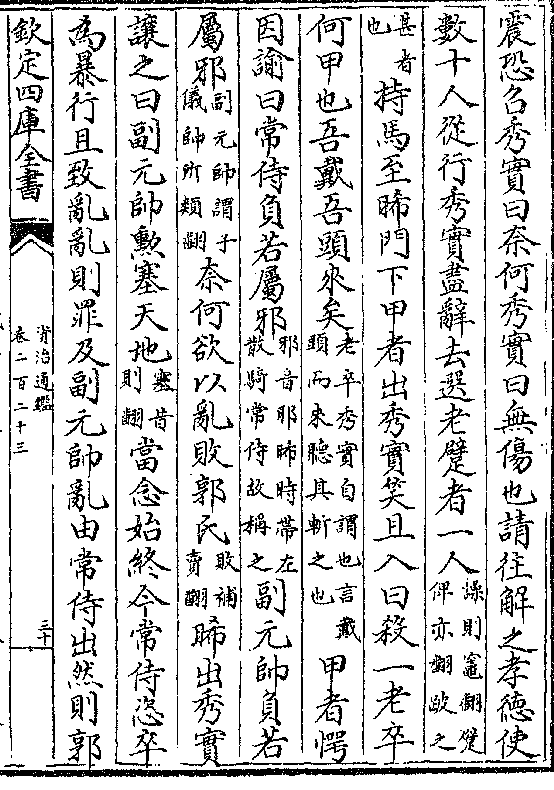 震恐召秀實曰奈何秀實曰無傷也請往解之孝德使
數十人從行秀實盡辭去選老躄者一人躁則竈翻躄俾亦翻跛之
甚者也持馬至晞門下甲者出秀實笑且入曰殺一老卒
何甲也吾戴吾頭來矣老卒秀實自謂也言戴頭而來聽其斬之也甲者愕
因諭曰常侍負若屬邪邪音耶晞時帶左散騎常侍故稱之副元帥負若
屬邪副元帥謂子儀帥所類翻奈何欲以亂敗郭氏敗補賣翻晞出秀實
讓之曰副元帥勲塞天地塞昔則翻當念始終今常侍恣卒
為暴行且致亂亂則罪及副元帥亂由常侍出然則郭
欽定四庫全書
資治通鑑
卷二百二十三
三十